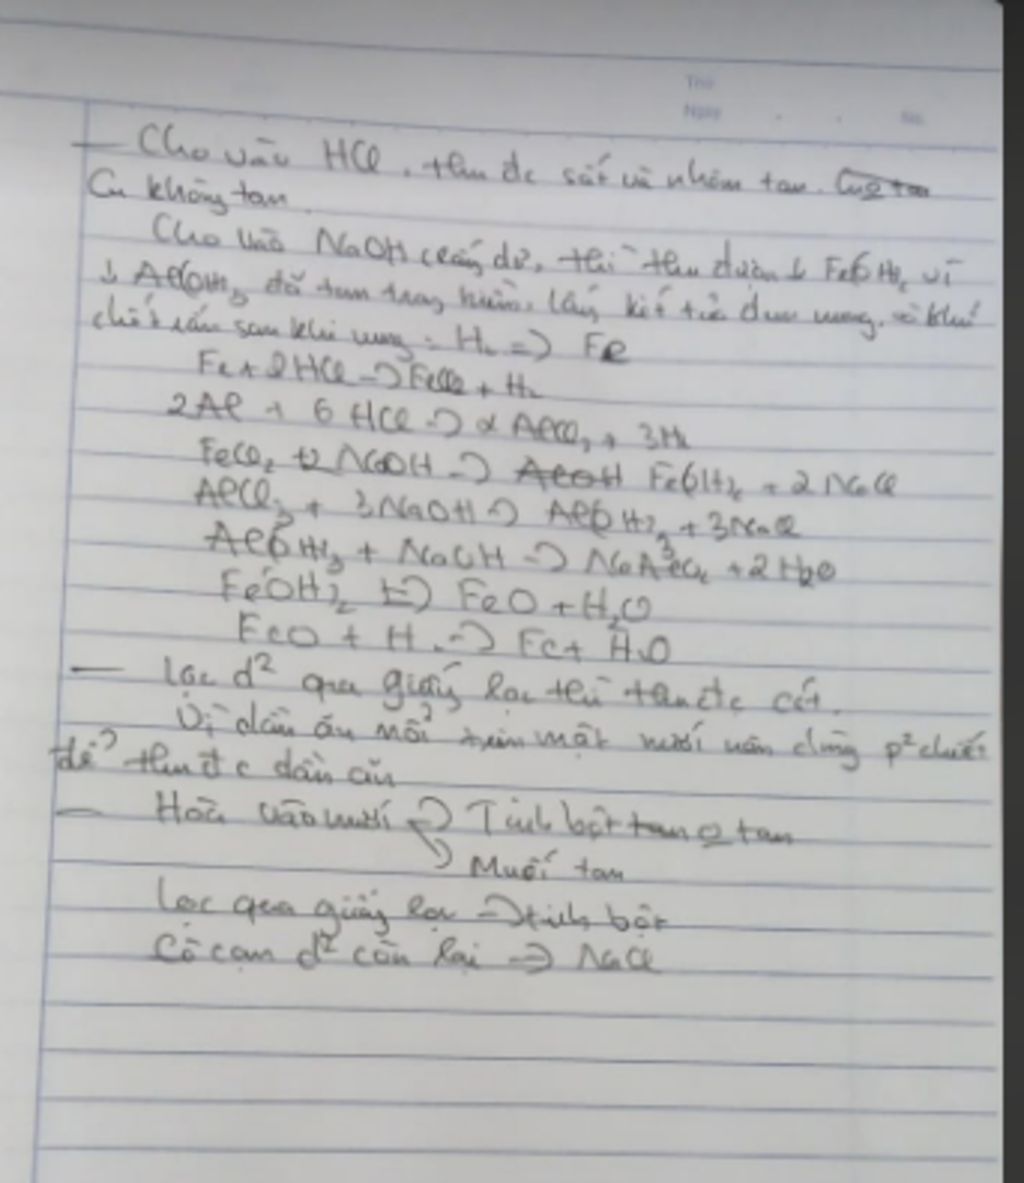 Thứ
Ngày No.
— Cho vào HCl, thu đc sắt và nhôm tan. Cu o tan
Cu không tan.
Cho vào NaOH dư, thì thu được ↓ Fe(OH)2 vì
↓ Al(OH)3 đã tan trong kiềm, lấy kết tủa đun nung, khử
chất rắn sau khi nung = H2 => Fe
Fe + 2HCl -> FeCl2 + H2
2Al + 6HCl -> 2AlCl3 + 3H2
FeCl2 + 2NaOH -> AlOH Fe(OH)2 + 2NaCl
AlCl3 + 3NaOH -> Al(OH)3 + 3NaCl
Al(OH)3 + NaOH -> NaAlO2 + 2H2O
Fe(OH)2 t-> FeO + H2O
FeO + H2 -> Fe + H2O
— Lọc d² qua giấy lọc thì thu đc cát.
Vì dầu ăn nổi trên mặt nước nên dùng p² chiết
để thu đc dầu ăn
— Hoà vào nước -> Tinh bột tan o tan
-> Muối tan
Lọc qua giấy lọc -> tinh bột
Cô cạn d² còn lại -> NaCl